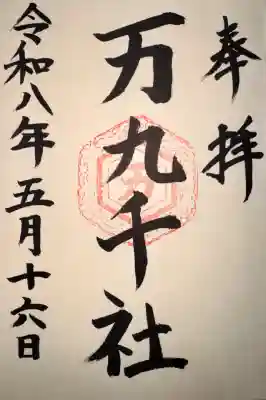 奉拝
万九千社
令和八年五月十六日